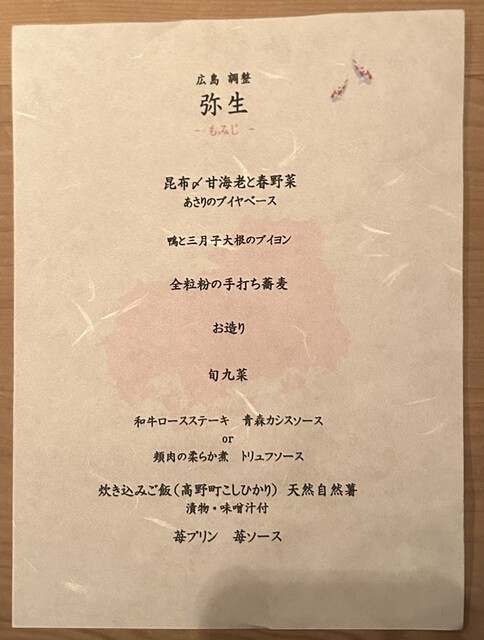 広島 調整
弥生
- もみじ -
昆布〆甘海老と春野菜
あさりのブイヤベース
鴨と三月子大根のブイヨン
全粒粉の手打ち蕎麦
お造り
旬九菜
和牛ロースステーキ 青森カシスソース
or
頬肉の柔らか煮 トリュフソース
炊き込みご飯(高野町こしひかり) 天然自然薯
漬物・味噌汁付
苺プリン 苺ソース